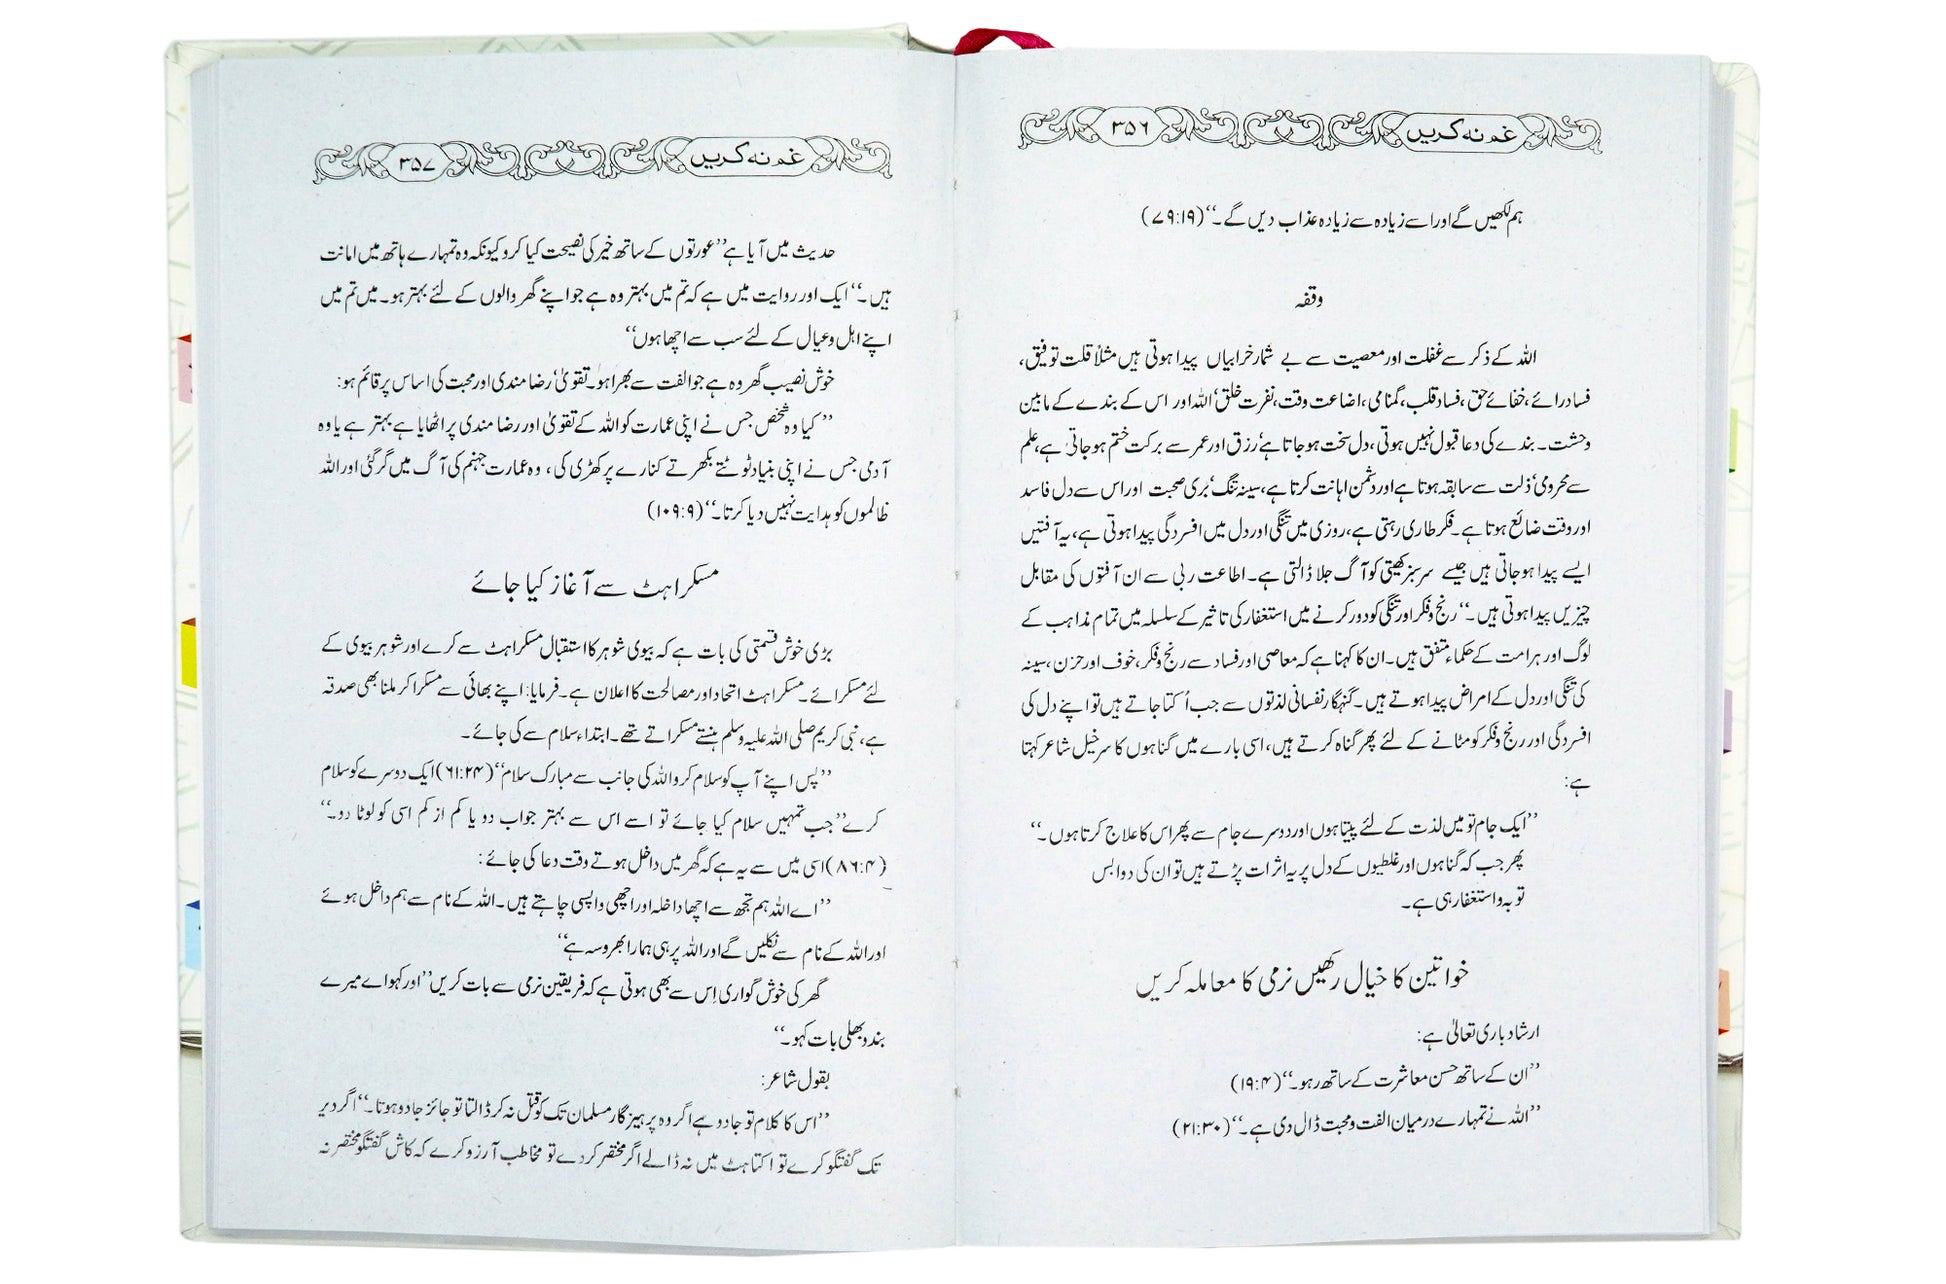 غم نہ کریں ۳۵۶
ہم لکھیں گے اور اسے زیادہ سے زیادہ عذاب دیں گے۔‘‘ (۷۹:۱۹)
وقفہ
اللہ کے ذکر سے غفلت اور معصیت سے بے شمار خرابیاں پیدا ہوتی ہیں مثلاً قلت توفیق،
فساد رائے، خفائے حق، فساد قلب، گمنامی، اضاعت وقت، نفرت خلق‘ اللہ اور اس کے بندے کے مابین
وحشت۔ بندے کی دعا قبول نہیں ہوتی، دل سخت ہو جاتا ہے‘ رزق اور عمر سے برکت ختم ہو جاتی ہے، علم
سے محرومی‘ ذلت سے سابقہ ہوتا ہے اور دشمن اہانت کرتا ہے، سینہ تنگ‘ بری صحبت اور اس سے دل فاسد
اور وقت ضائع ہوتا ہے۔ فکر طاری رہتی ہے، روزی میں تنگی اور دل میں افسردگی پیدا ہوتی ہے، یہ آفتیں
ایسے پیدا ہو جاتی ہیں جیسے سرسبز کھیتی کو آگ جلا ڈالتی ہے۔ اطاعت ربی سے ان آفتوں کی مقابل
چیزیں پیدا ہوتی ہیں۔‘‘ رنج و فکر اور تنگی کو دور کرنے میں استغفار کی تاثیر کے سلسلہ میں تمام مذاہب کے
لوگ اور ہر امت کے حکماء متفق ہیں۔ ان کا کہنا ہے کہ معاصی اور فساد سے رنج و فکر، خوف اور حزن، سینہ
کی تنگی اور دل کے امراض پیدا ہوتے ہیں۔ گنہگار نفسانی لذتوں سے جب اُکتا جاتے ہیں تو اپنے دل کی
افسردگی اور رنج و فکر کو مٹانے کے لئے پھر گناہ کرتے ہیں، اسی بارے میں گناہوں کا سرخیل شاعر کہتا
ہے:
’’ایک جام تو میں لذت کے لئے پیتا ہوں اور دوسرے جام سے پھر اس کا علاج کرتا ہوں۔‘‘
پھر جب کہ گناہوں اور غلطیوں کے دل پر یہ اثرات پڑتے ہیں تو ان کی دوا بس
توبہ و استغفار ہی ہے۔
خواتین کا خیال رکھیں نرمی کا معاملہ کریں
ارشاد باری تعالیٰ ہے:
’’ان کے ساتھ حسن معاشرت کے ساتھ رہو۔‘‘ (۱۹:۴)
’’اللہ نے تمہارے درمیان الفت و محبت ڈال دی ہے۔‘‘ (۲۱:۳۰)
غم نہ کریں ۳۵۷
حدیث میں آیا ہے ’’عورتوں کے ساتھ خیر کی نصیحت کیا کرو کیونکہ وہ تمہارے ہاتھ میں امانت
ہیں۔‘‘ ایک اور روایت میں ہے کہ تم میں بہتر وہ ہے جو اپنے گھر والوں کے لئے بہتر ہو۔ میں تم میں
اپنے اہل و عیال کے لئے سب سے اچھا ہوں‘‘
خوش نصیب گھر وہ ہے جو الفت سے بھرا ہو۔ تقویٰ‘ رضامندی اور محبت کی اساس پر قائم ہو:
’’کیا وہ شخص جس نے اپنی عمارت کو اللہ کے تقویٰ اور رضامندی پر اٹھایا ہے بہتر ہے یا وہ
آدمی جس نے اپنی بنیاد ٹوٹتے بکھرتے کنارے پر کھڑی کی، وہ عمارت جہنم کی آگ میں گر گئی اور اللہ
ظالموں کو ہدایت نہیں دیا کرتا۔‘‘ (۱۰۹:۹)
مسکراہٹ سے آغاز کیا جائے
بڑی خوش قسمتی کی بات ہے کہ بیوی شوہر کا استقبال مسکراہٹ سے کرے اور شوہر بیوی کے
لئے مسکرائے۔ مسکراہٹ اتحاد اور مصالحت کا اعلان ہے۔ فرمایا: اپنے بھائی سے مسکرا کر ملنا بھی صدقہ
ہے، نبی کریم صلی اللہ علیہ وسلم ہنستے مسکراتے تھے۔ ابتداء سلام سے کی جائے۔
’’پس اپنے آپ کو سلام کرو اللہ کی جانب سے مبارک سلام‘‘ (۶۱:۲۴) ایک دوسرے کو سلام
کرے ’’جب تمہیں سلام کیا جائے تو اسے اس سے بہتر جواب دو یا کم از کم اسی کو لوٹا دو۔‘‘
(۸۶:۴) اسی میں سے یہ ہے کہ گھر میں داخل ہوتے وقت دعا کی جائے:
’’اے اللہ ہم تجھ سے اچھا داخلہ اور اچھی واپسی چاہتے ہیں۔ اللہ کے نام سے ہم داخل ہوئے
اور اللہ کے نام سے نکلیں گے اور اللہ پر ہی ہمارا بھروسہ ہے‘‘
گھر کی خوش گواری اِس سے بھی ہوتی ہے کہ فریقین نرمی سے بات کریں ’’اور کہو اے میرے
بندو بھلی بات کہو۔‘‘
بقول شاعر:
’’اس کا کلام تو جادو ہے اگر وہ پرہیزگار مسلمان تک کو قتل نہ کر ڈالتا تو جائز جادو ہوتا۔‘‘ اگر دیر
تک گفتگو کرے تو اکتاہٹ میں نہ ڈالے اگر مختصر کر دے تو مخاطب آرزو کرے کہ کاش گفتگو مختصر نہ